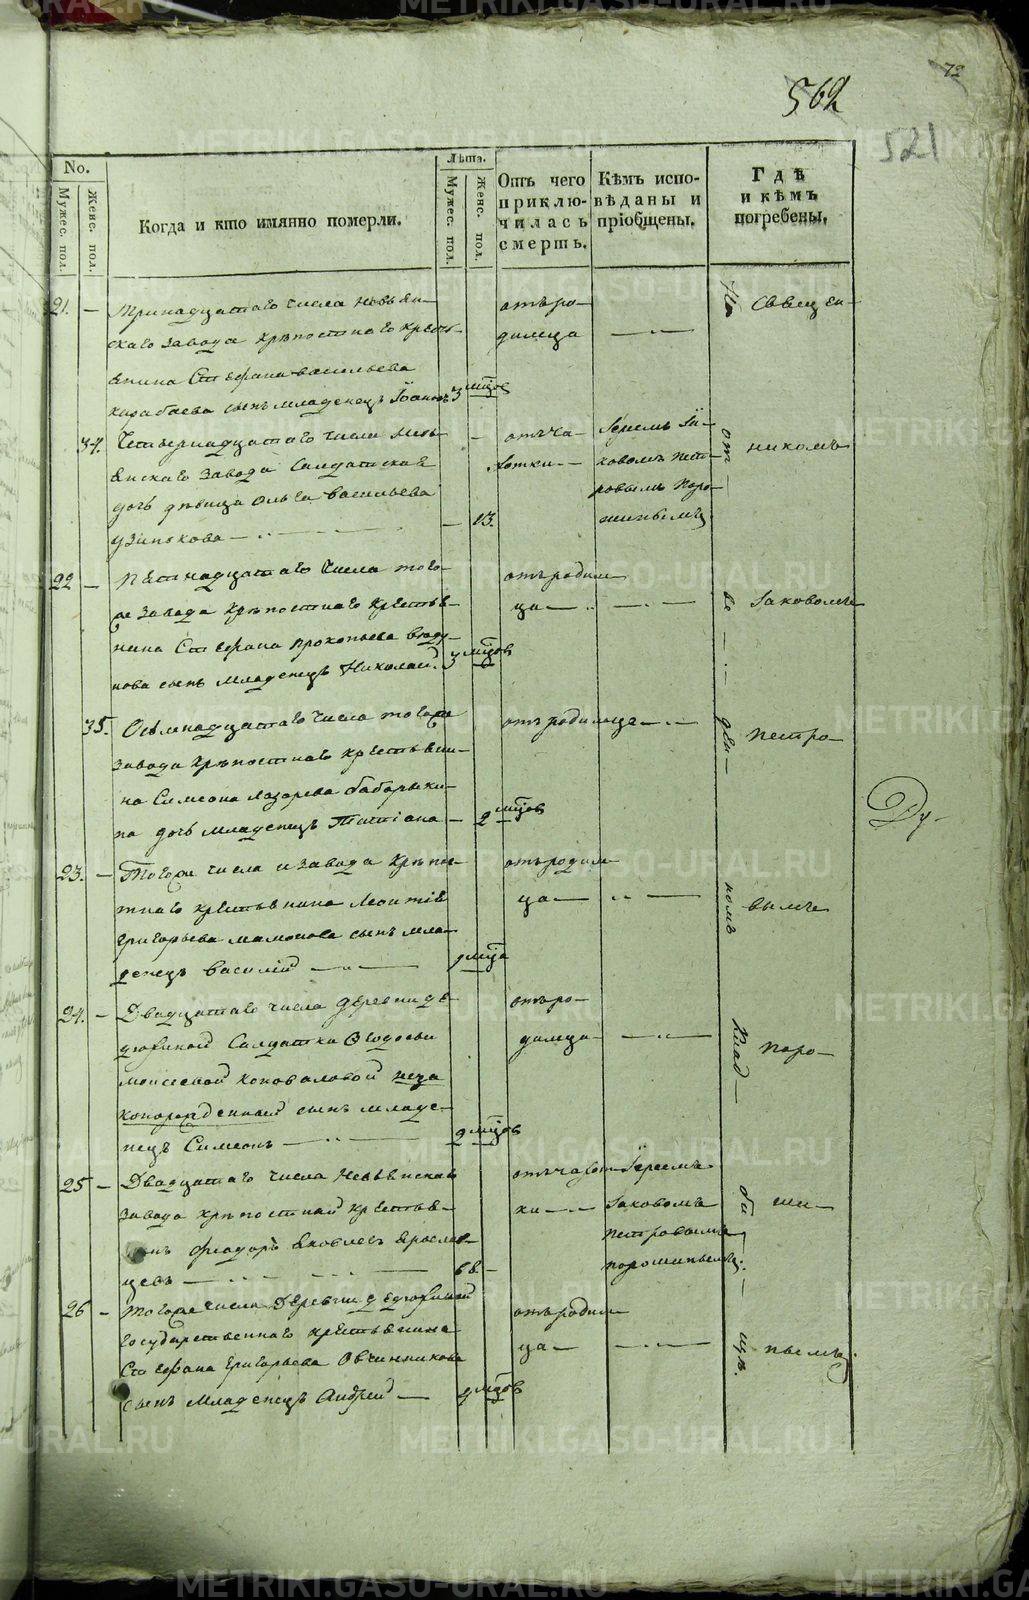 72
562
521
No.
Мужес. пол.
Женс. пол.
Когда и кто имянно померли.
Лѣта.
Мужес. пол.
Женс. пол.
Отъ чего приклю-чилась смерть.
Кѣмъ испо-вѣданы и пріобщены.
Гдѣ и кѣмъ погребены.
21. — Тринадцатаго числа Невьян-
скаго завода крѣпостнаго кресть-
янина Стефана Васильева
сынъ младенецъ Іоаннъ 3 мѣсцов
отъ ро-
димца
34. Четвернадцатаго числа Невь-
янскаго завода Салдатская
дочь дѣвица Ольга Васильева
13.
отъ ча-
хотки
Іереемъ Іа-
ковомъ Пет-
ровымъ Поро-
шинымъ
22 — Пятнадцатаго числа того-
же завода крѣпостнаго крестья-
нина Стефана Прокопьева
сынъ младенецъ Николай. 3 мѣсцов
отъ родим-
ца
35. Осьмнадцатаго числа тогоже
завода крѣпостнаго крестьяни-
на Симеона Лазарева Бабарыки-
на дочь младенецъ Татіана — 2 мѣсцов
отъ родимца
23. — Тогоже числа и завода крѣпос-
тнаго крестьянина Леонтія
Григорьева Мамонова сынъ мла-
денецъ Василій
отъ родим-
ца
24. — Двадцатаго числа деревни
Салдатки Ѳеодосьи
Моисеевой Коноваловой неза
конорожденный сынъ младе-
нецъ Симеонъ
отъ ро-
димца
25 — Двадцатаго числа Невьянскаго
завода крѣпостный крестья-
нинъ Феодоръ Яковлевъ Ярослав-
цевъ
отъ чахот-
ки
Іереемъ
Іаковомъ
Петровымъ
Порошинымъ
26 — Тогоже числа деревни
государственнаго крестьянина
Стефана Григорьева Овчинникова
сынъ младенецъ Андрей
отъ родим-
ца
На
от
ве
ден
номъ
Клад
би
щѣ.
Священ-
никомъ
Іаковомъ
Петро-
вымъ
Поро-
ши-
нымъ.
Ду-
METRIKI.GASO-URAL.RU